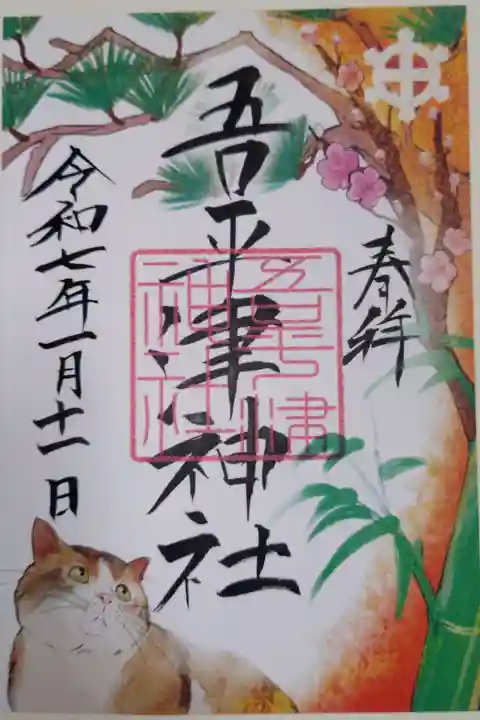 奉拝
吾平津神社
吾平津
神社
令和七年一月十一日